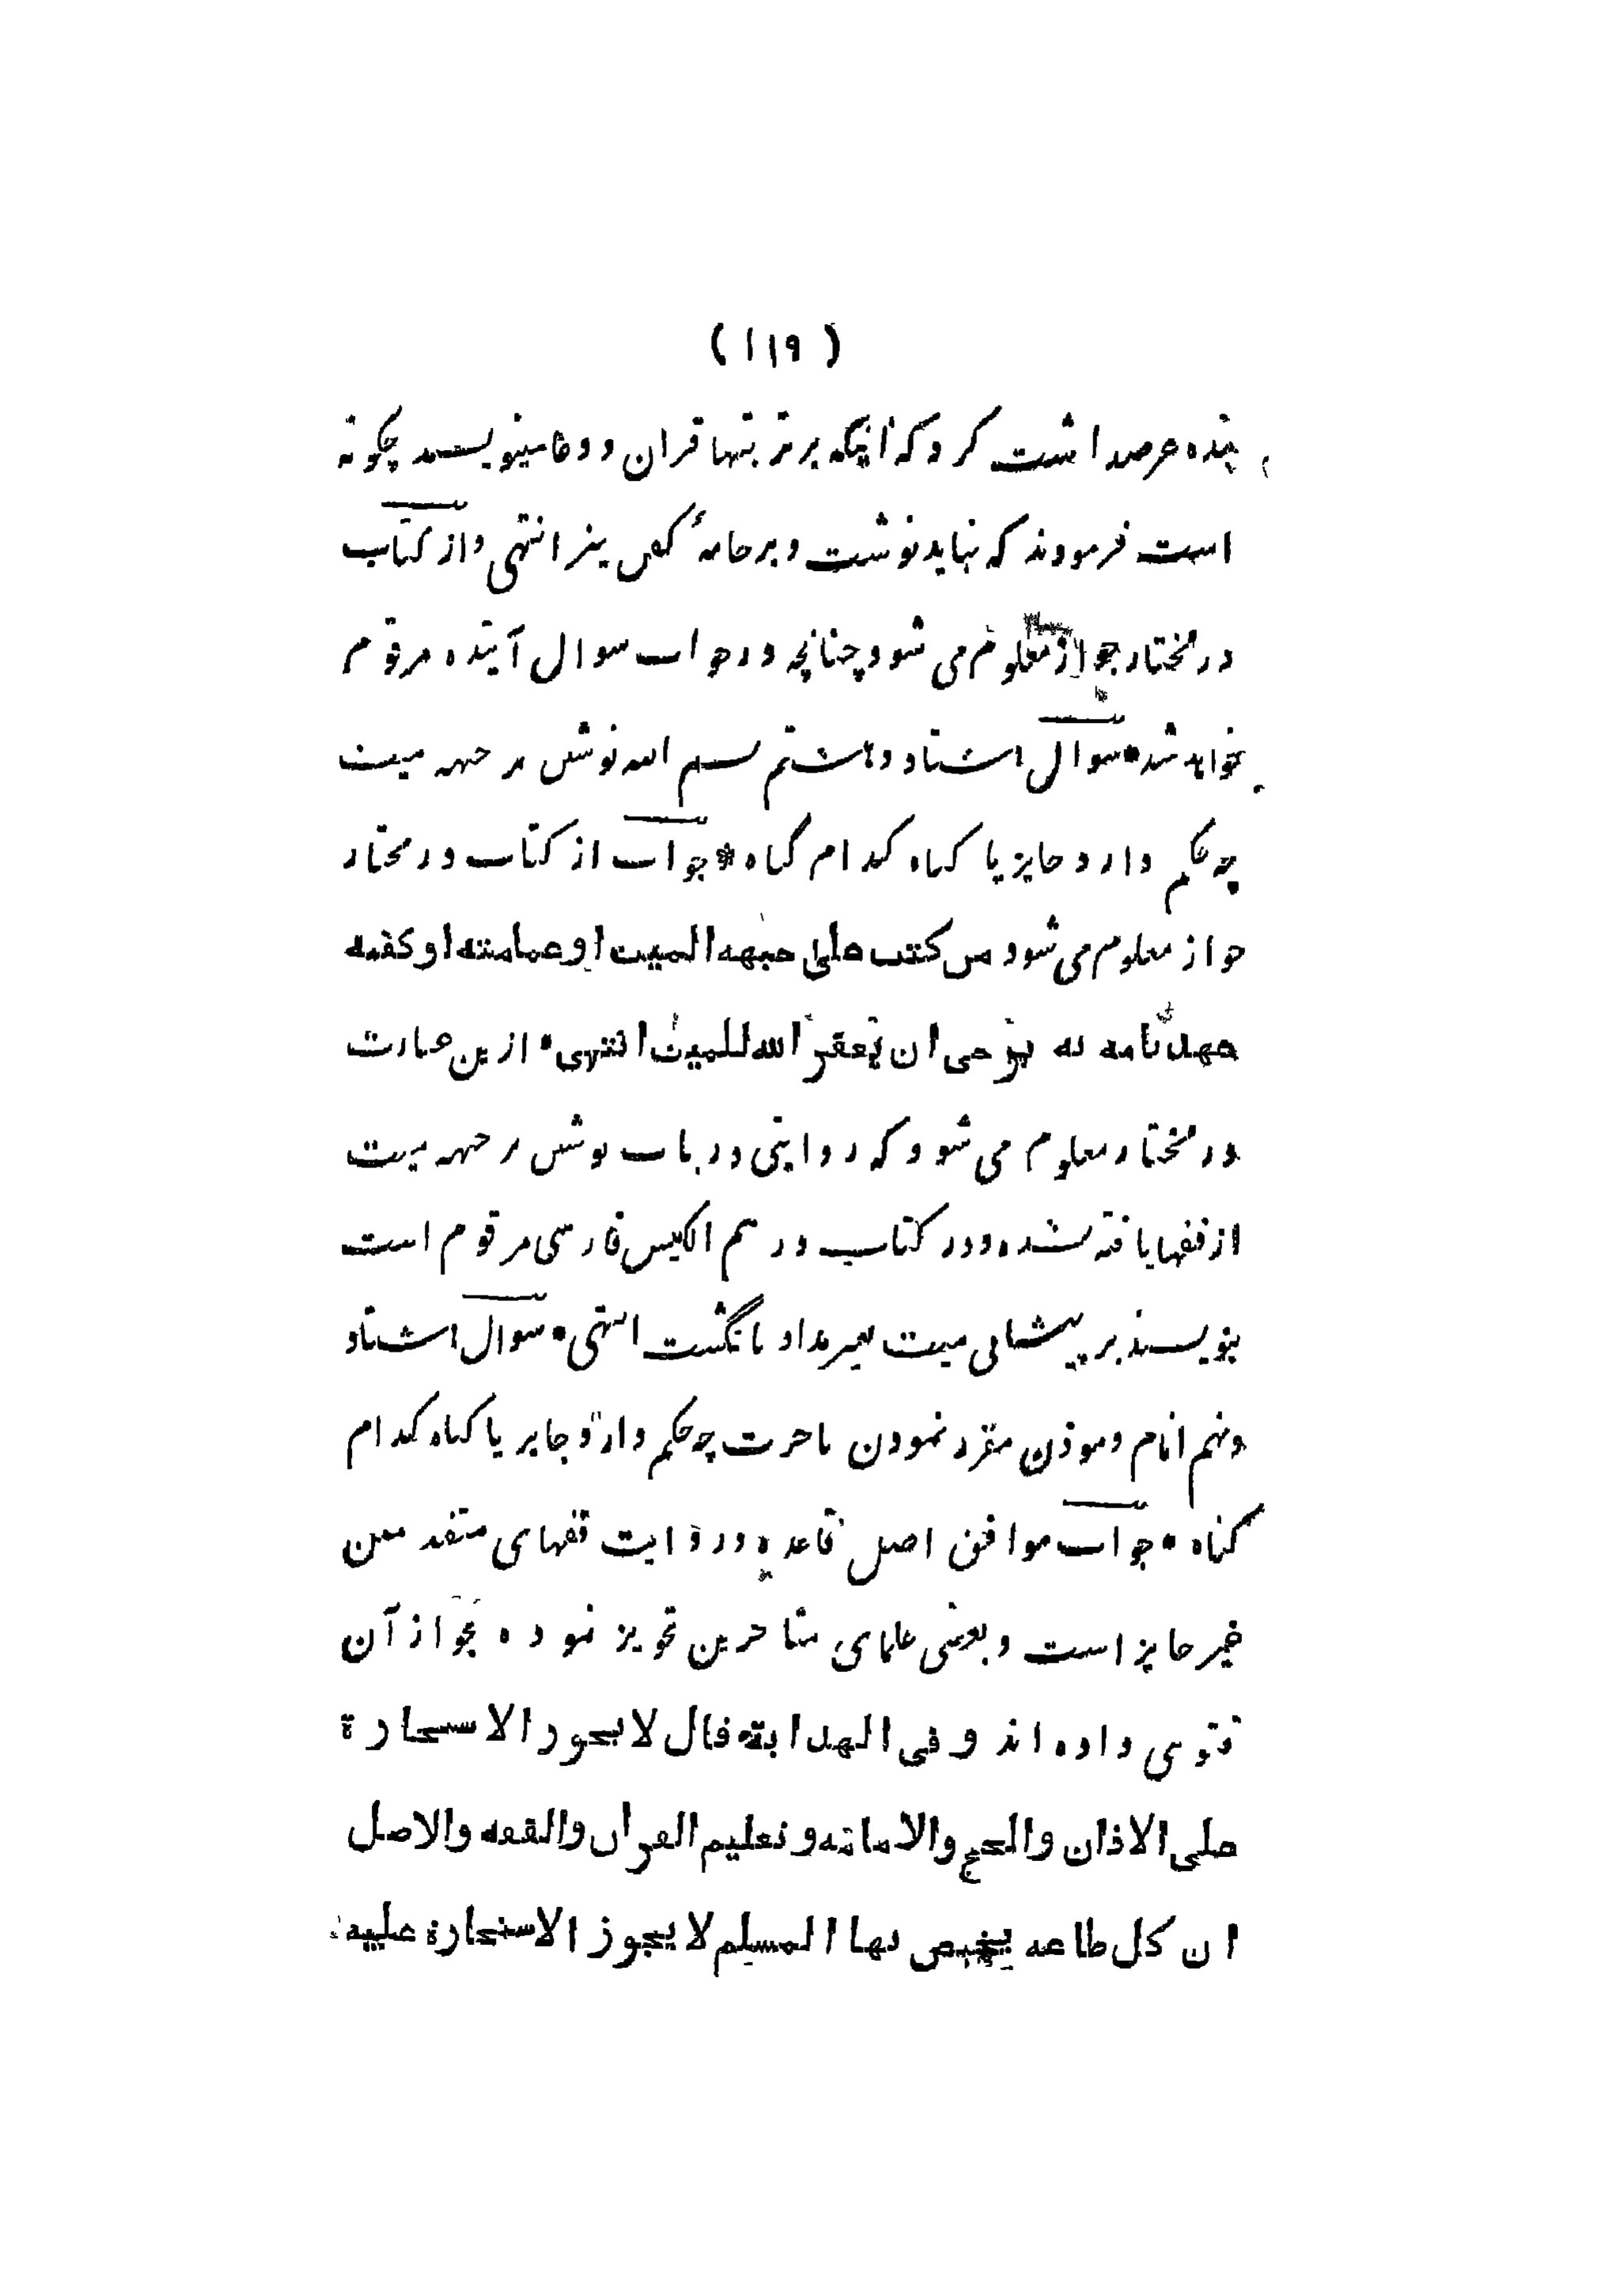 ( ۱۱۹ )
بنده عرصداشت کرد که اینکه بر تربتها قران و دعا مینویسند چگونه
است فرمودند که نباید نوشت و بر جامهٔ کفن نیز انتهی و از کتاب
در مختار جواز معلوم می شود چنانچه در جواب سوال آینده مرقوم
خواهد شد * سوال هشتاد و هشتم بسم الله نوشتن بر جبهه میت
چه حکم دارد جایز یا گناه کدام گناه * جواب از کتاب در مختار
جواز معلوم می شود من کتب علی جبهه المیت او عمامته او کفنه
عهد نامه له یرجی ان یغفر الله للمیت انتهی * ازین عبارت
در مختار معلوم می شود که روایتی در باب نوشتن بر جبهه میت
از فقها یافته شده و در کتاب در هم الکیس فارسی مرقوم است
بنویسند بر پیشانی میت بغیر مداد بانگشت انتهی * سوال هشتاد
و نهم امام و موذن مقرر نمودن باجرت چه حکم دارد جایز یا گناه کدام
گناه * جواب موافق اصل قاعده و روایت فقهای متقدمین
غیر جایز است و بعضی علمای متاخرین تجویز نموده بجواز آن
فتوی داده اند و فی الهدایة قال لا یجوز الاستجارة
علی الاذان والحج والامامة و تعلیم القران والفقه والاصل
ان کل طاعه یختص بها المسلم لا یجوز الاستجارة علیه